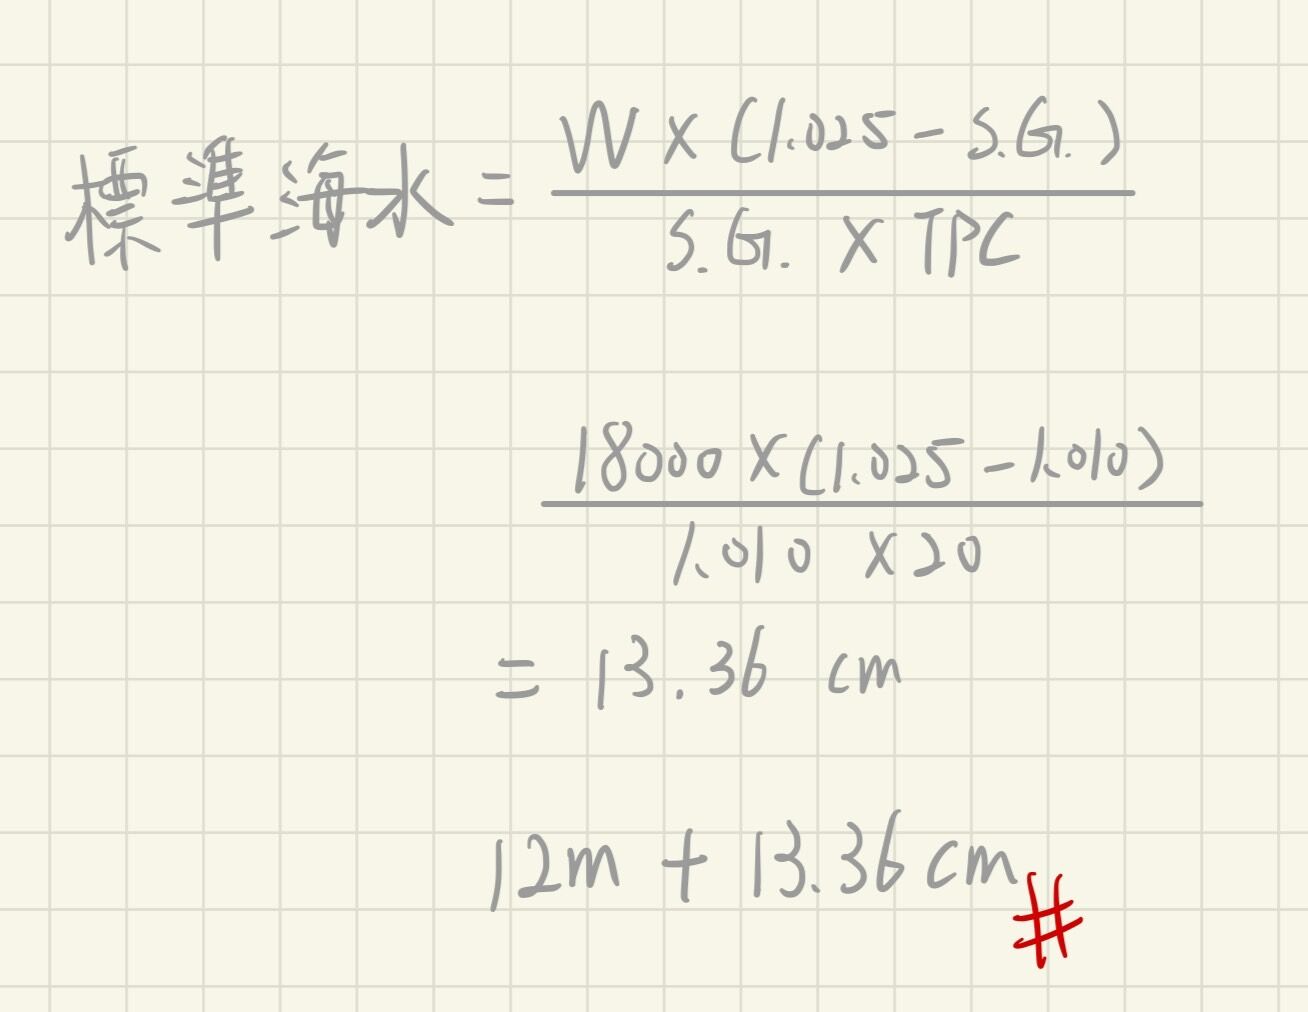 標準海水 = W × (1.025 - S.G.) / S.G. × TPC
18000 × (1.025 - 1.010) / 1.010 × 20
= 13.36 cm
12m + 13.36 cm #